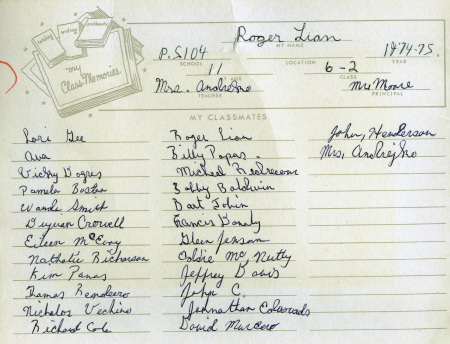 reading
writing
my
Class Memories
Roger Lian
MY NAME
P.S. 104
SCHOOL
LOCATION
1974-75.
YEAR
11
MY AGE
6-2
CLASS
Mrs. Andrejko
TEACHER
Mr. Moore
PRINCIPAL
MY CLASSMATES
Lori Gee
Ava
Vicky Bogres
Pamela Boston
Wanda Smith
Crowell
Eileen McEvoy
Nathalie Richarson
Kim Panas
Thomas
Nicholos Vechino
Richard Cole
Roger Lian
Billy Papas.
Michael
Bobby Baldwin
Bart Tobin
Francis Donaty
Glenn Jenson
Mc, Nutty
Jeffrey Davis
John C.
Johnathan Edwards
David Marcero
John, Henderson
Mrs, Andrejko